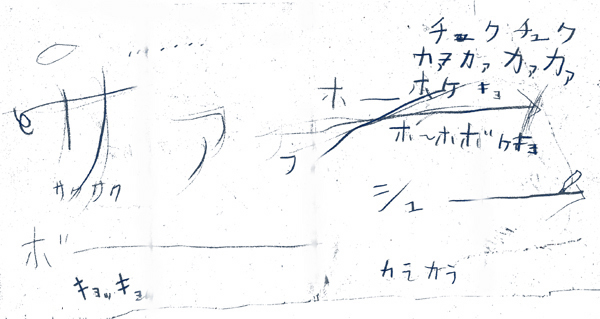 チュク チュク
カァ カァ カァ カァ
ホー ホケキョ
サァ
ボ〜ホボケキョ
サク サク
シュー
ボー
キョッキョ
カラカラ